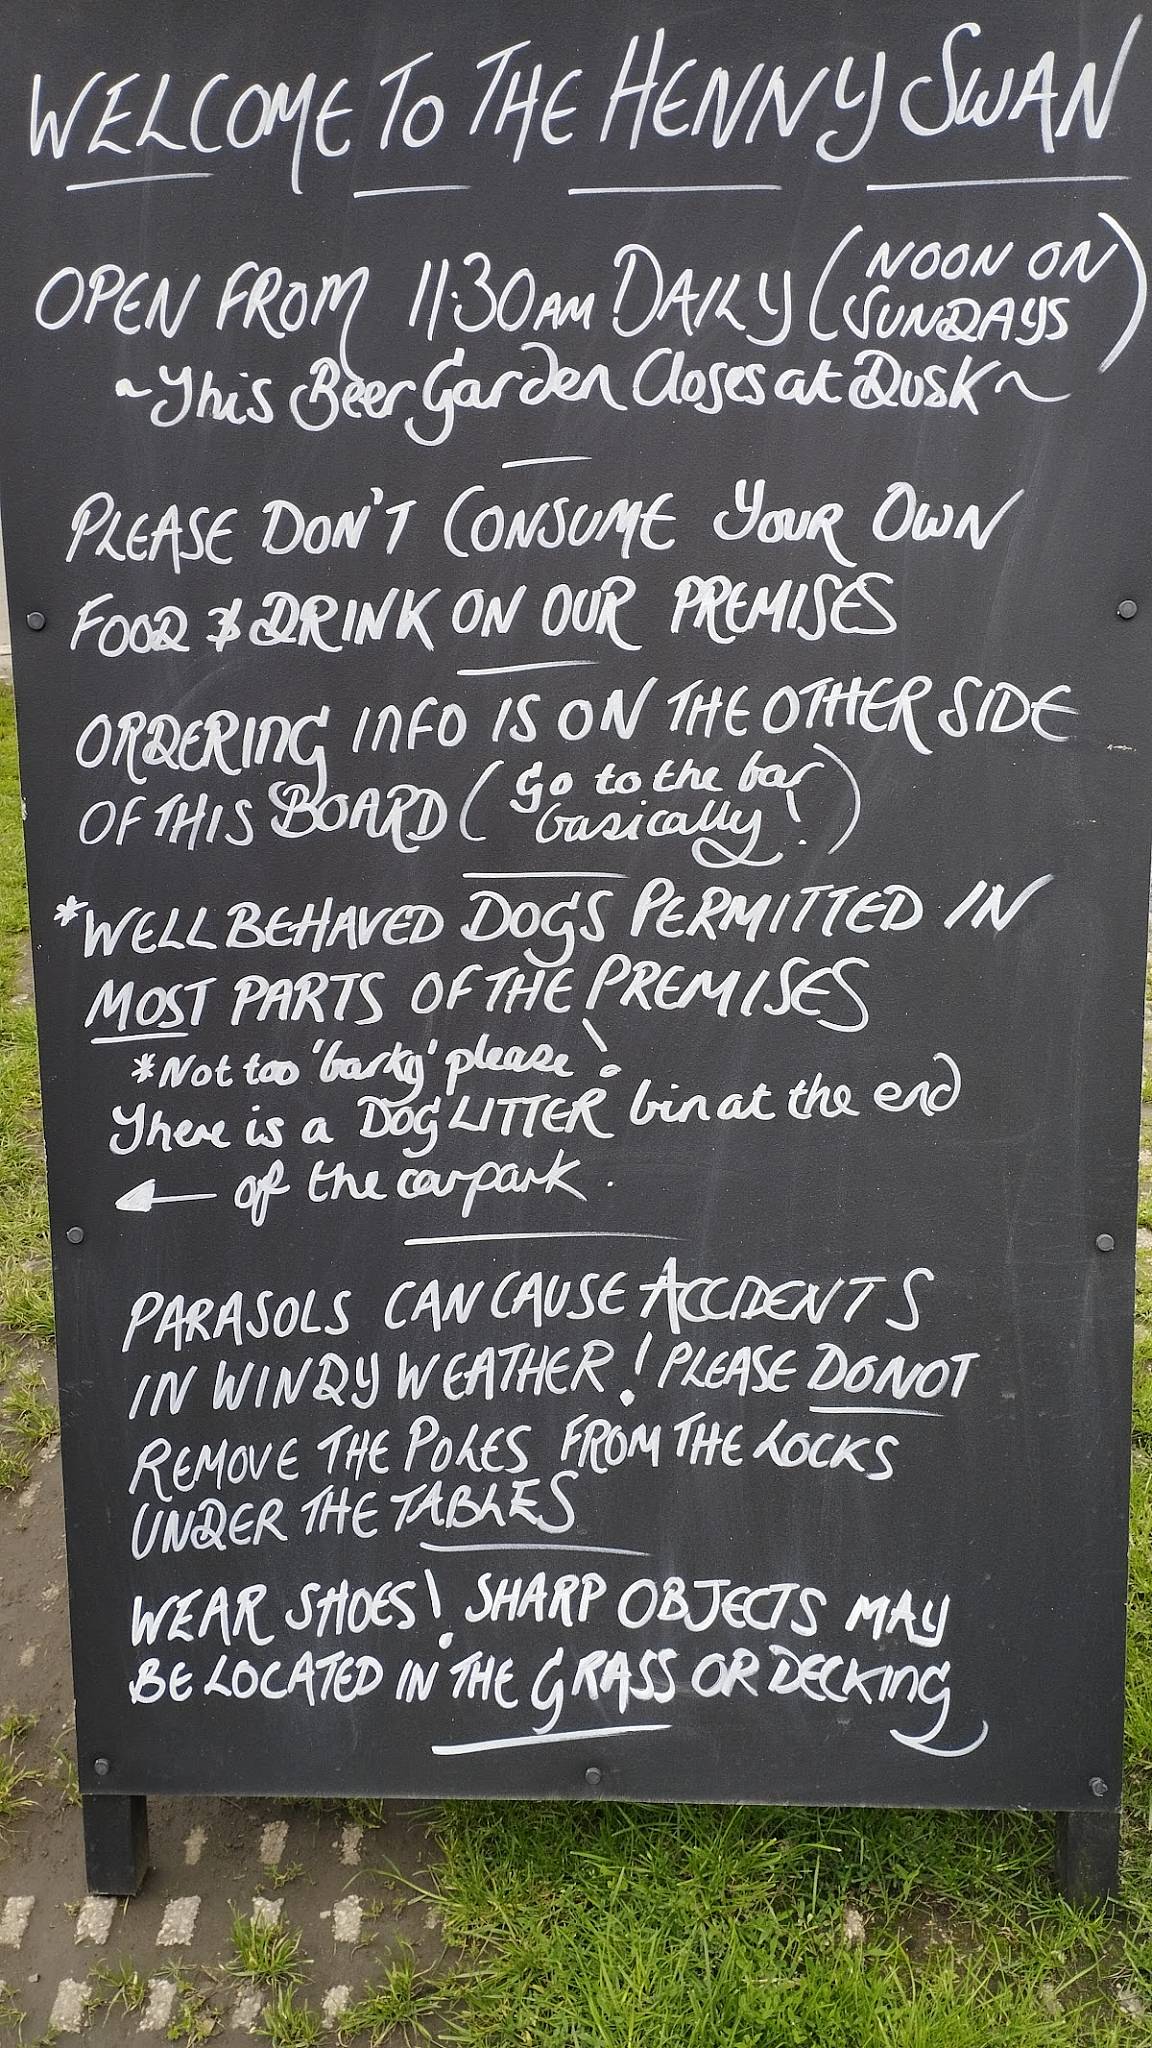 WELCOME TO THE HENNY SWAN
OPEN FROM 11.30AM DAILY (NOON ON
SUNDAYS)
~This Beer Garden Closes at Dusk~
PLEASE DON'T CONSUME YOUR OWN
FOOD & DRINK ON OUR PREMISES
ORDERING INFO IS ON THE OTHER SIDE
OF THIS BOARD (Go to the bar
basically!)
*WELL BEHAVED DOGS PERMITTED IN
MOST PARTS OF THE PREMISES
*Not too 'barky' please!
There is a DOG LITTER bin at the end
← of the carpark.
PARASOLS CAN CAUSE ACCIDENTS
IN WINDY WEATHER! PLEASE DO NOT
REMOVE THE POLES FROM THE LOCKS
UNDER THE TABLES
WEAR SHOES! SHARP OBJECTS MAY
BE LOCATED IN THE GRASS OR DECKING